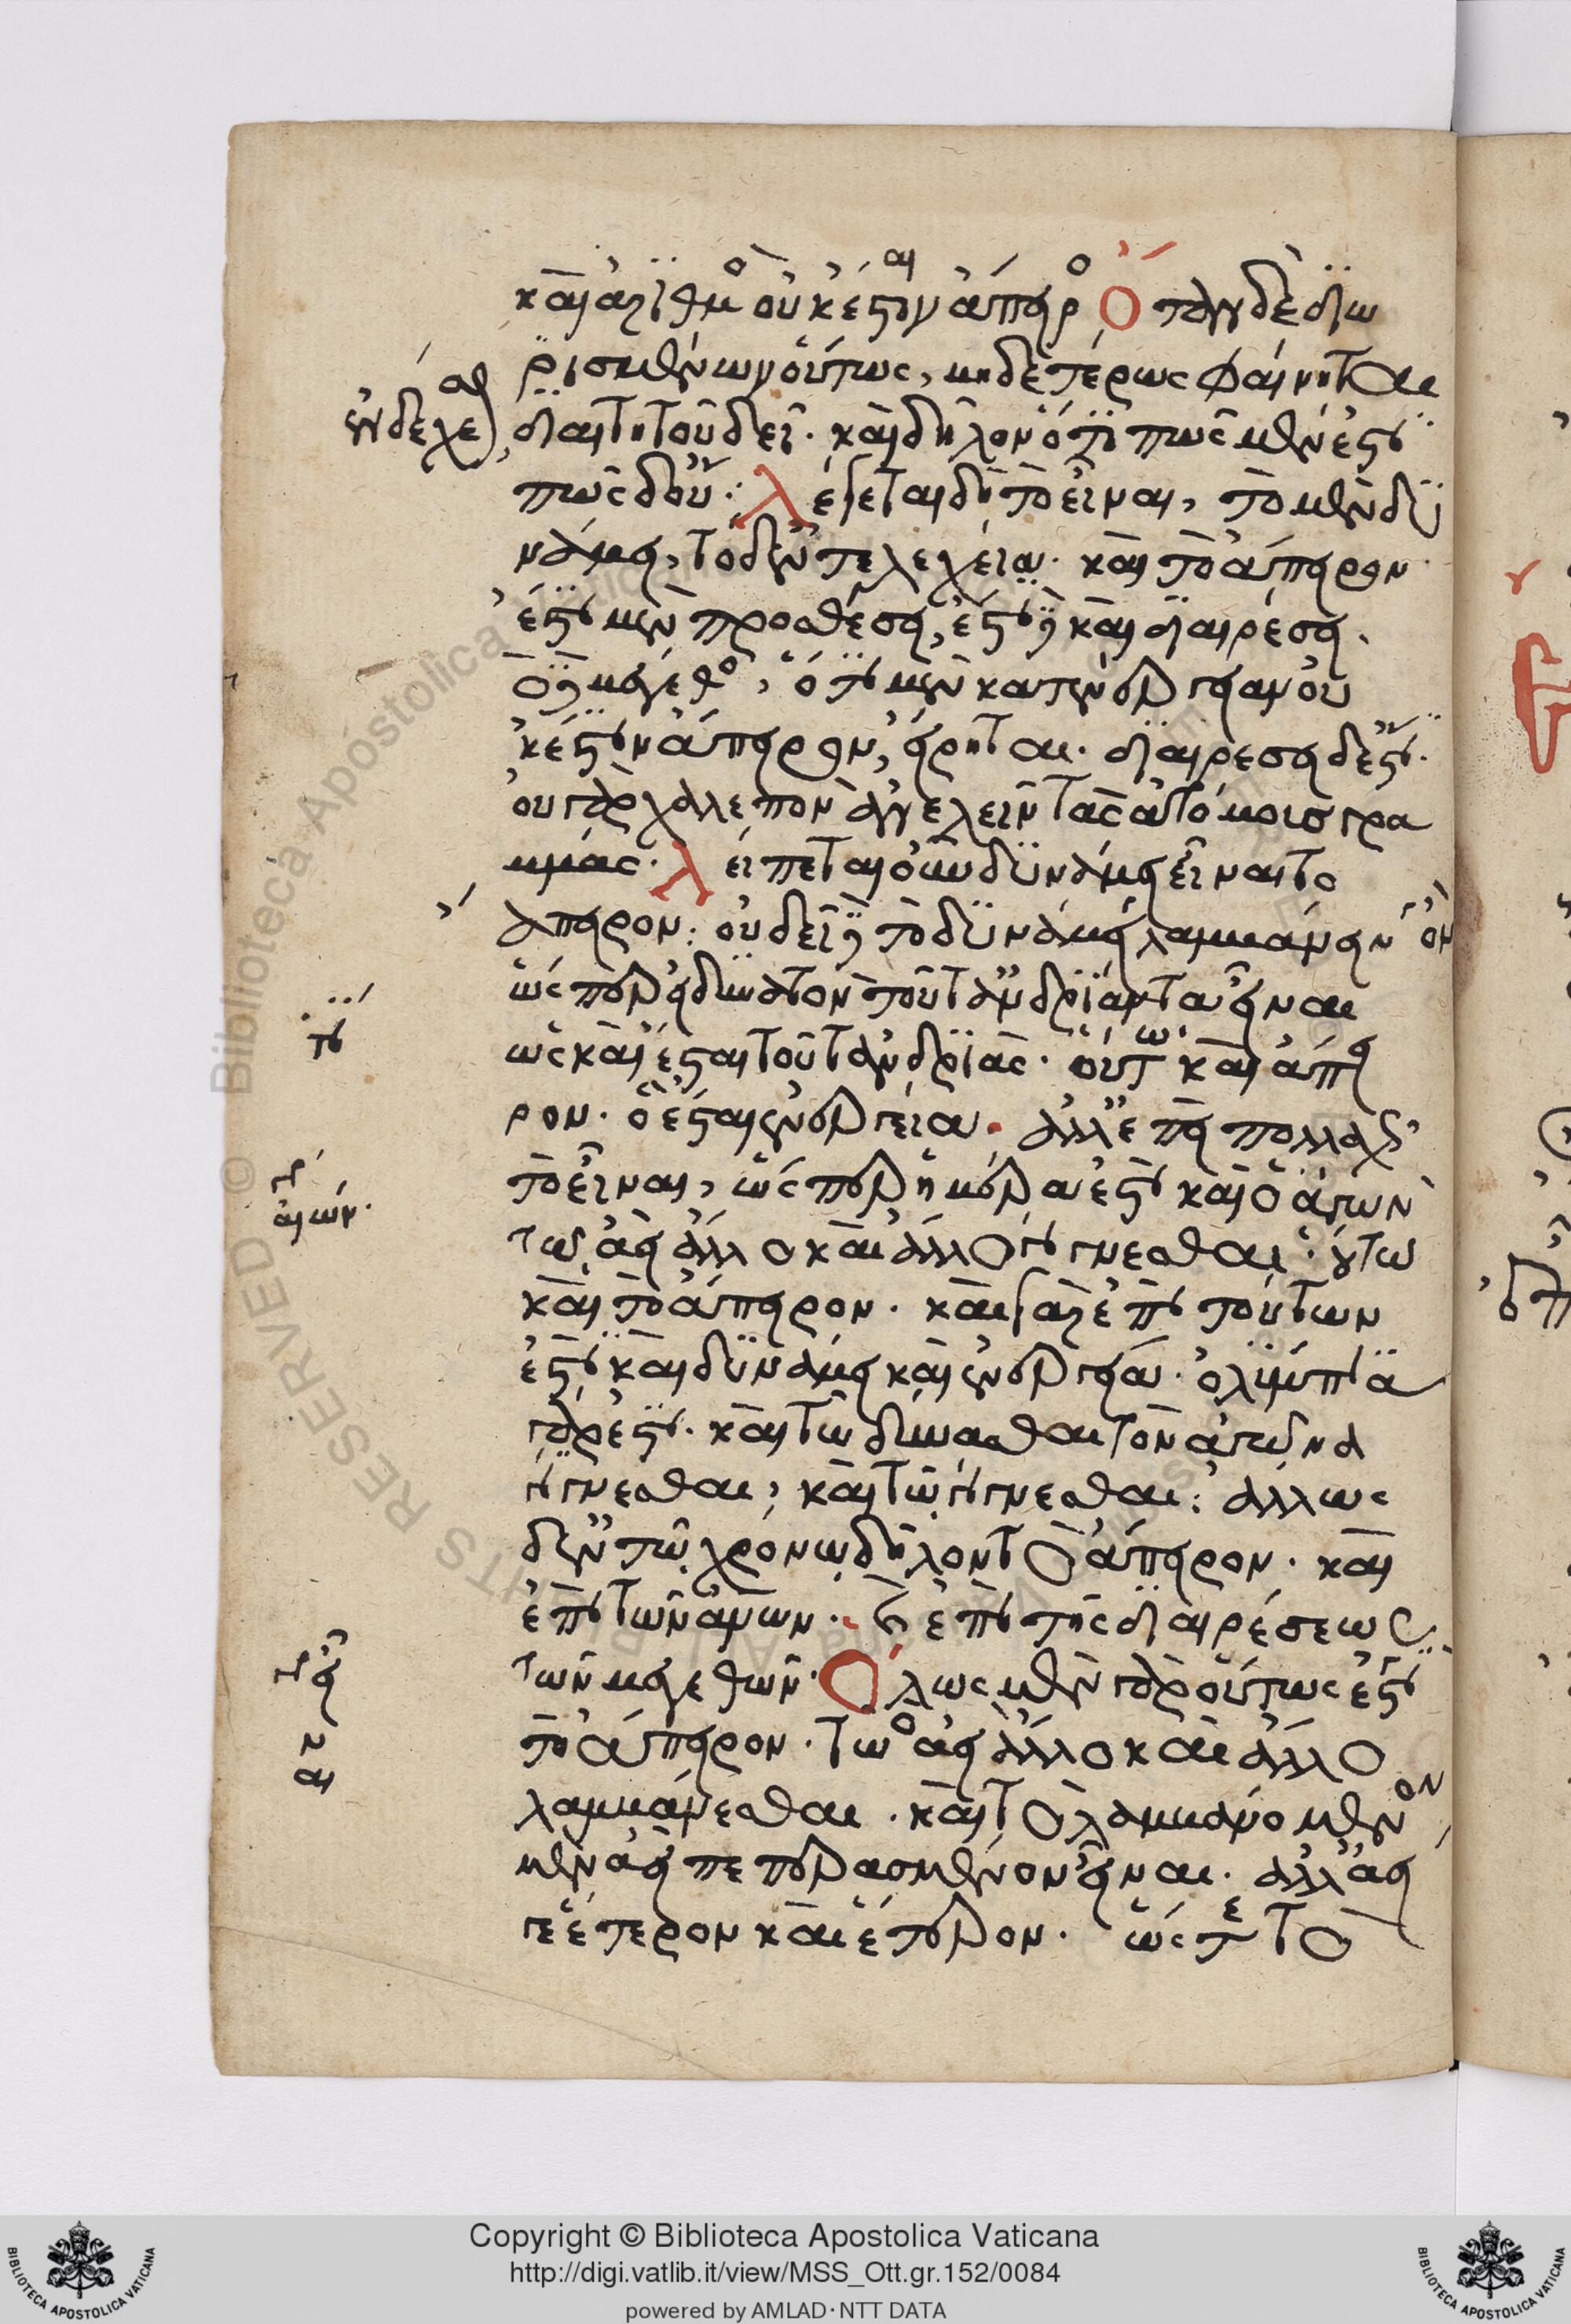 καὶ ἀριθμὸς οὐκ ἔσται ἄπειρος Ὅταν δὲ διω
ρισμένων οὕτως, μηδετέρως φαίνηται
ἐνδέχεσθαι, διαιτητοῦ δεῖ. καὶ δῆλον ὅτι πῶς μὲν ἔστι
πῶς δ' οὔ: Λέγεται δὴ τὸ εἶναι, τὸ μὲν δυ
νάμει, τὸ δ' ἐντελεχείᾳ. καὶ τὸ ἄπειρον
ἔστι μὲν προσθέσει, ἔστι δὲ καὶ διαιρέσει.
τὸ δὲ μέγεθος, ὅτι μὲν κατ' ἐνέργειαν οὐ
κ ἔστιν ἄπειρον, εἴρηται. διαιρέσει δ' ἐστί.
οὐ γὰρ χαλεπὸν ἀνελεῖν τὰς ἀτόμους γρα
μμάς. Λείπεται οὖν δυνάμει εἶναι τὸ
ἄπειρον: οὐ δεῖ δὲ τὸ δυνάμει ὂν λαμβάνειν
ὥσπερ εἰ δυνατὸν τοῦτ' ἀνδριάντα εἶναι
ὡς καὶ ἔσται τοῦτ' ἀνδριάς. οὕτω καὶ ἄπει
τι
ρον. ὃ ἔσται ἐνεργείᾳ. ἀλλ' ἐπεὶ πολλαχῶς
τὸ εἶναι, ὥσπερ ἡ ἡμέρα ἐστὶ καὶ ὁ ἀγὼν
τῷ ἀεὶ ἄλλο καὶ ἄλλο γίγνεσθαι. οὕτω
καὶ τὸ ἄπειρον. καὶ γὰρ ἐπὶ τούτων
ἔστι καὶ δυνάμει καὶ ἐνεργείᾳ. ὀλύμπια
γάρ ἐστι. καὶ τῷ δύνασθαι τὸν ἀγῶνα
γίγνεσθαι, καὶ τῷ γίγνεσθαι: ἄλλως
δ' ἔν τε τῷ χρόνῳ δῆλον τὸ ἄπειρον. καὶ
ἐπὶ τῶν ἀνθρώπων. καὶ ἐπὶ τῆς διαιρέσεως
τῶν μεγεθῶν. Ὅλως μὲν γὰρ οὕτως ἔστι
τὸ ἄπειρον. τῷ ἀεὶ ἄλλο καὶ ἄλλο
λαμβάνεσθαι. καὶ τὸ λαμβανόμενον
μὲν ἀεὶ πεπερασμένον εἶναι. ἀλλ' ἀεί
γε ἕτερον καὶ ἕτερον. ὥστε τὸ